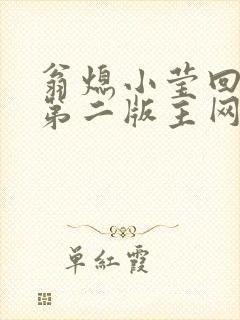 翁熄小莹回
第二版主网
单红霞